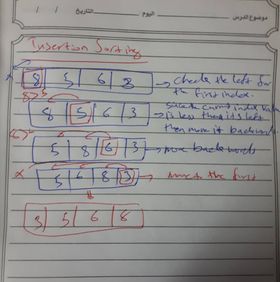 موضوع الدرس اليوم التاريخ / /
Insertion Sorting
x 8 5 6 8 → check the left for
the first index.
8>5
8 5 6 3 → since the current index value
is less than it's left
then move it backward
8>6
5 8 6 3 → move backwards
x 5 6 8 3 → move to the first
3 5 6 8